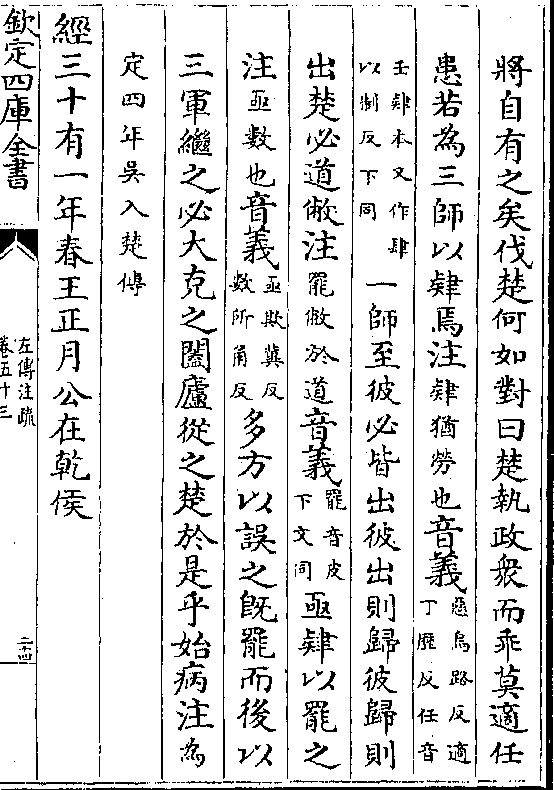 將自有之矣伐楚何如對曰楚執政衆而乖莫適任
患若為三師以肄焉注肄猶勞也音義惡烏路反適丁歷反任音
壬肄本又作肆以制反下同一師至彼必皆出彼出則歸彼歸則
出楚必道敝注罷敝於道音義罷音皮下文同亟肄以罷之
注亟數也音義亟欺冀反數所角反多方以誤之既罷而後以
三軍繼之必大克之闔廬從之楚於是乎始病注為
定四年吳入楚傳
經三十有一年春王正月公在乾侯
欽定四庫全書
左傳注疏
卷五十三
二十四